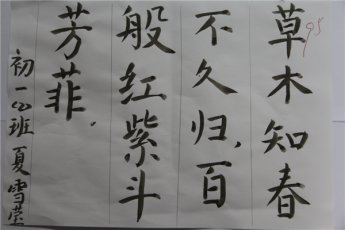 草木知春
不久归,百
般红紫斗
芳菲.
初一 班夏雪莹
95